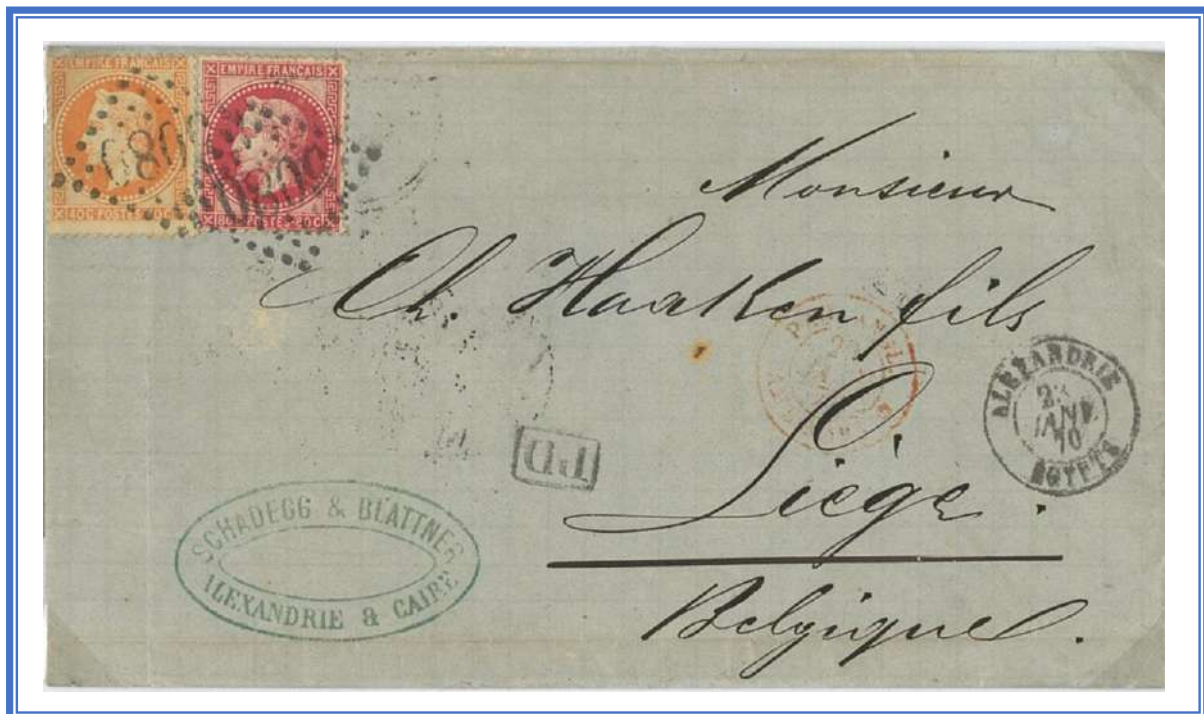 EMPIRE FRANCAIS
40C POSTES 40C
EMPIRE FRANCAIS
80C POSTES 80C
5080
5080
Monsieur
Ch. Haaken fils
Liége.
Belgique.
PD
ALEXANDRIE
JANV
70
EGYPTE
SCHADEGG & BLATTNER
ALEXANDRIE & CAIRE